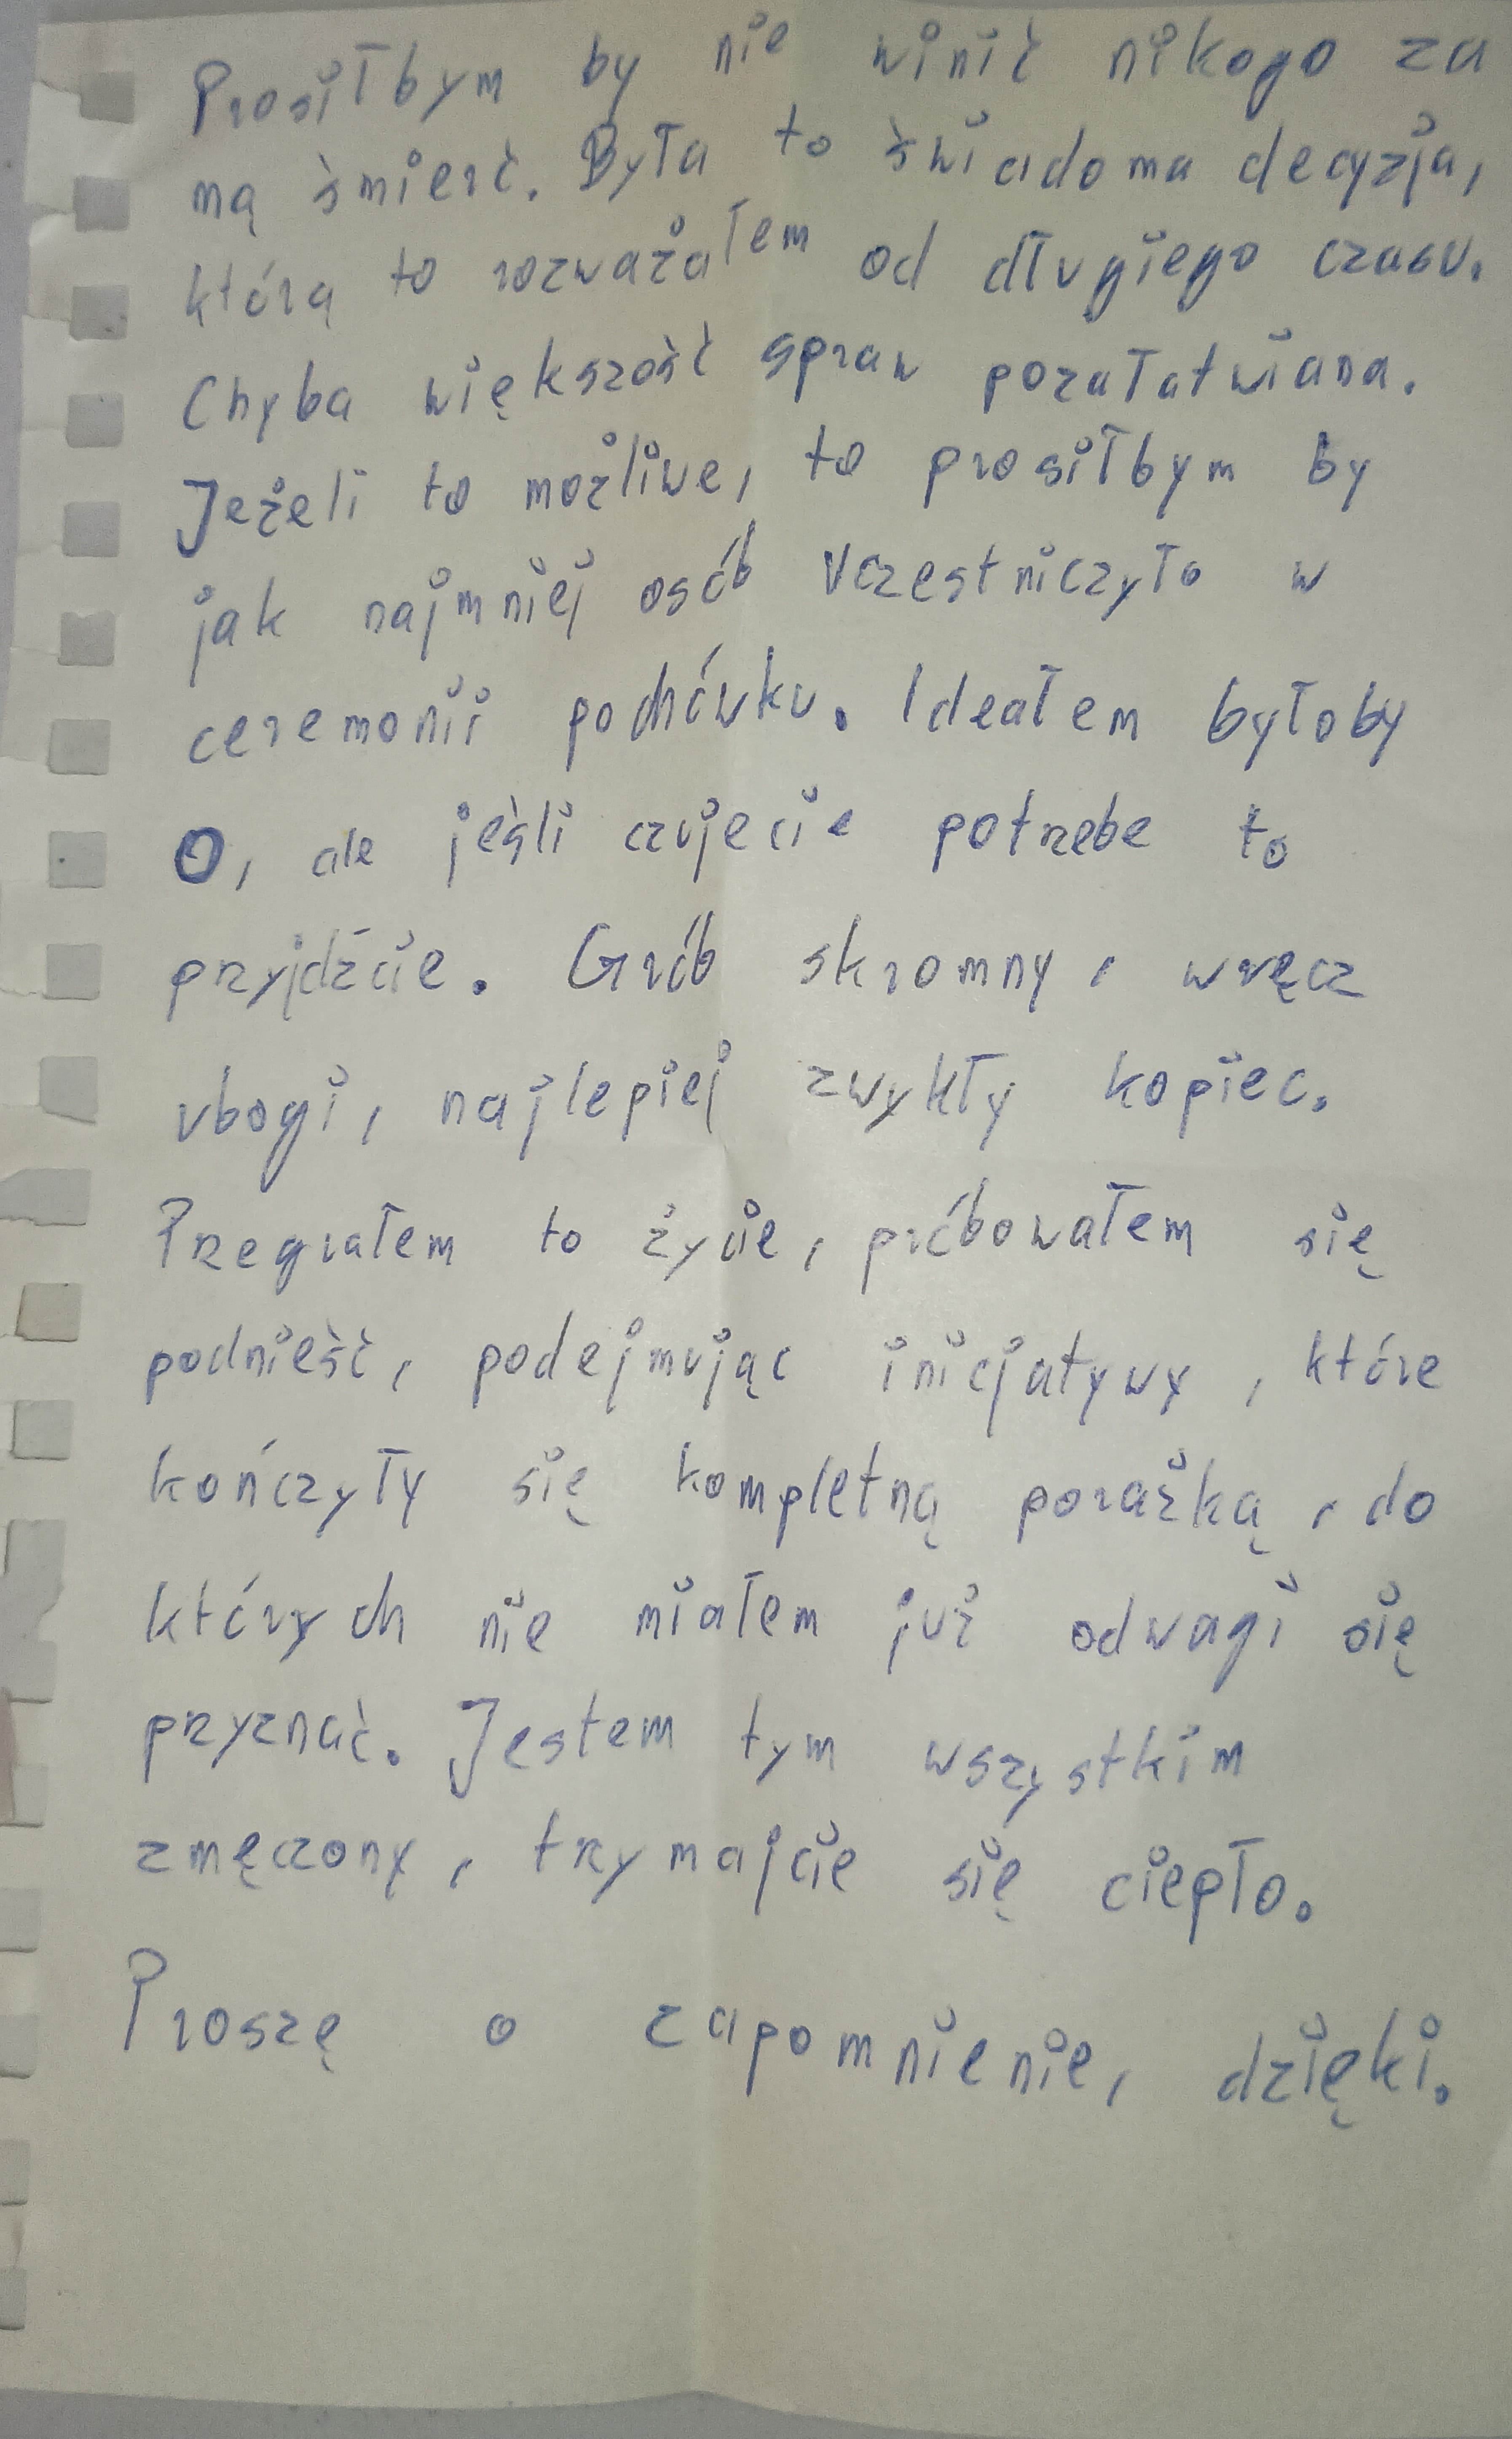 Prosiłbym by nie winić nikogo za
mą śmierć. Była to świadoma decyzja,
którą to rozważałem od długiego czasu.
Chyba większość spraw pozałatwiana.
Jeżeli to możliwe, to prosiłbym by
jak najmniej osób uczestniczyło w
ceremonii pochówku. Ideałem byłoby
0, ale jeśli czujecie potrzebe to
przyjdźcie. Grób skromny, wręcz
ubogi, najlepiej zwykły kopiec.
Przegrałem to życie, próbowałem się
podnieść, podejmując inicjatywy, które
kończyły się kompletną porażką, do
których nie miałem już odwagi się
przyznać. Jestem tym wszystkim
zmęczony, trzymajcie się ciepło.
Proszę o zapomnienie, dzięki.